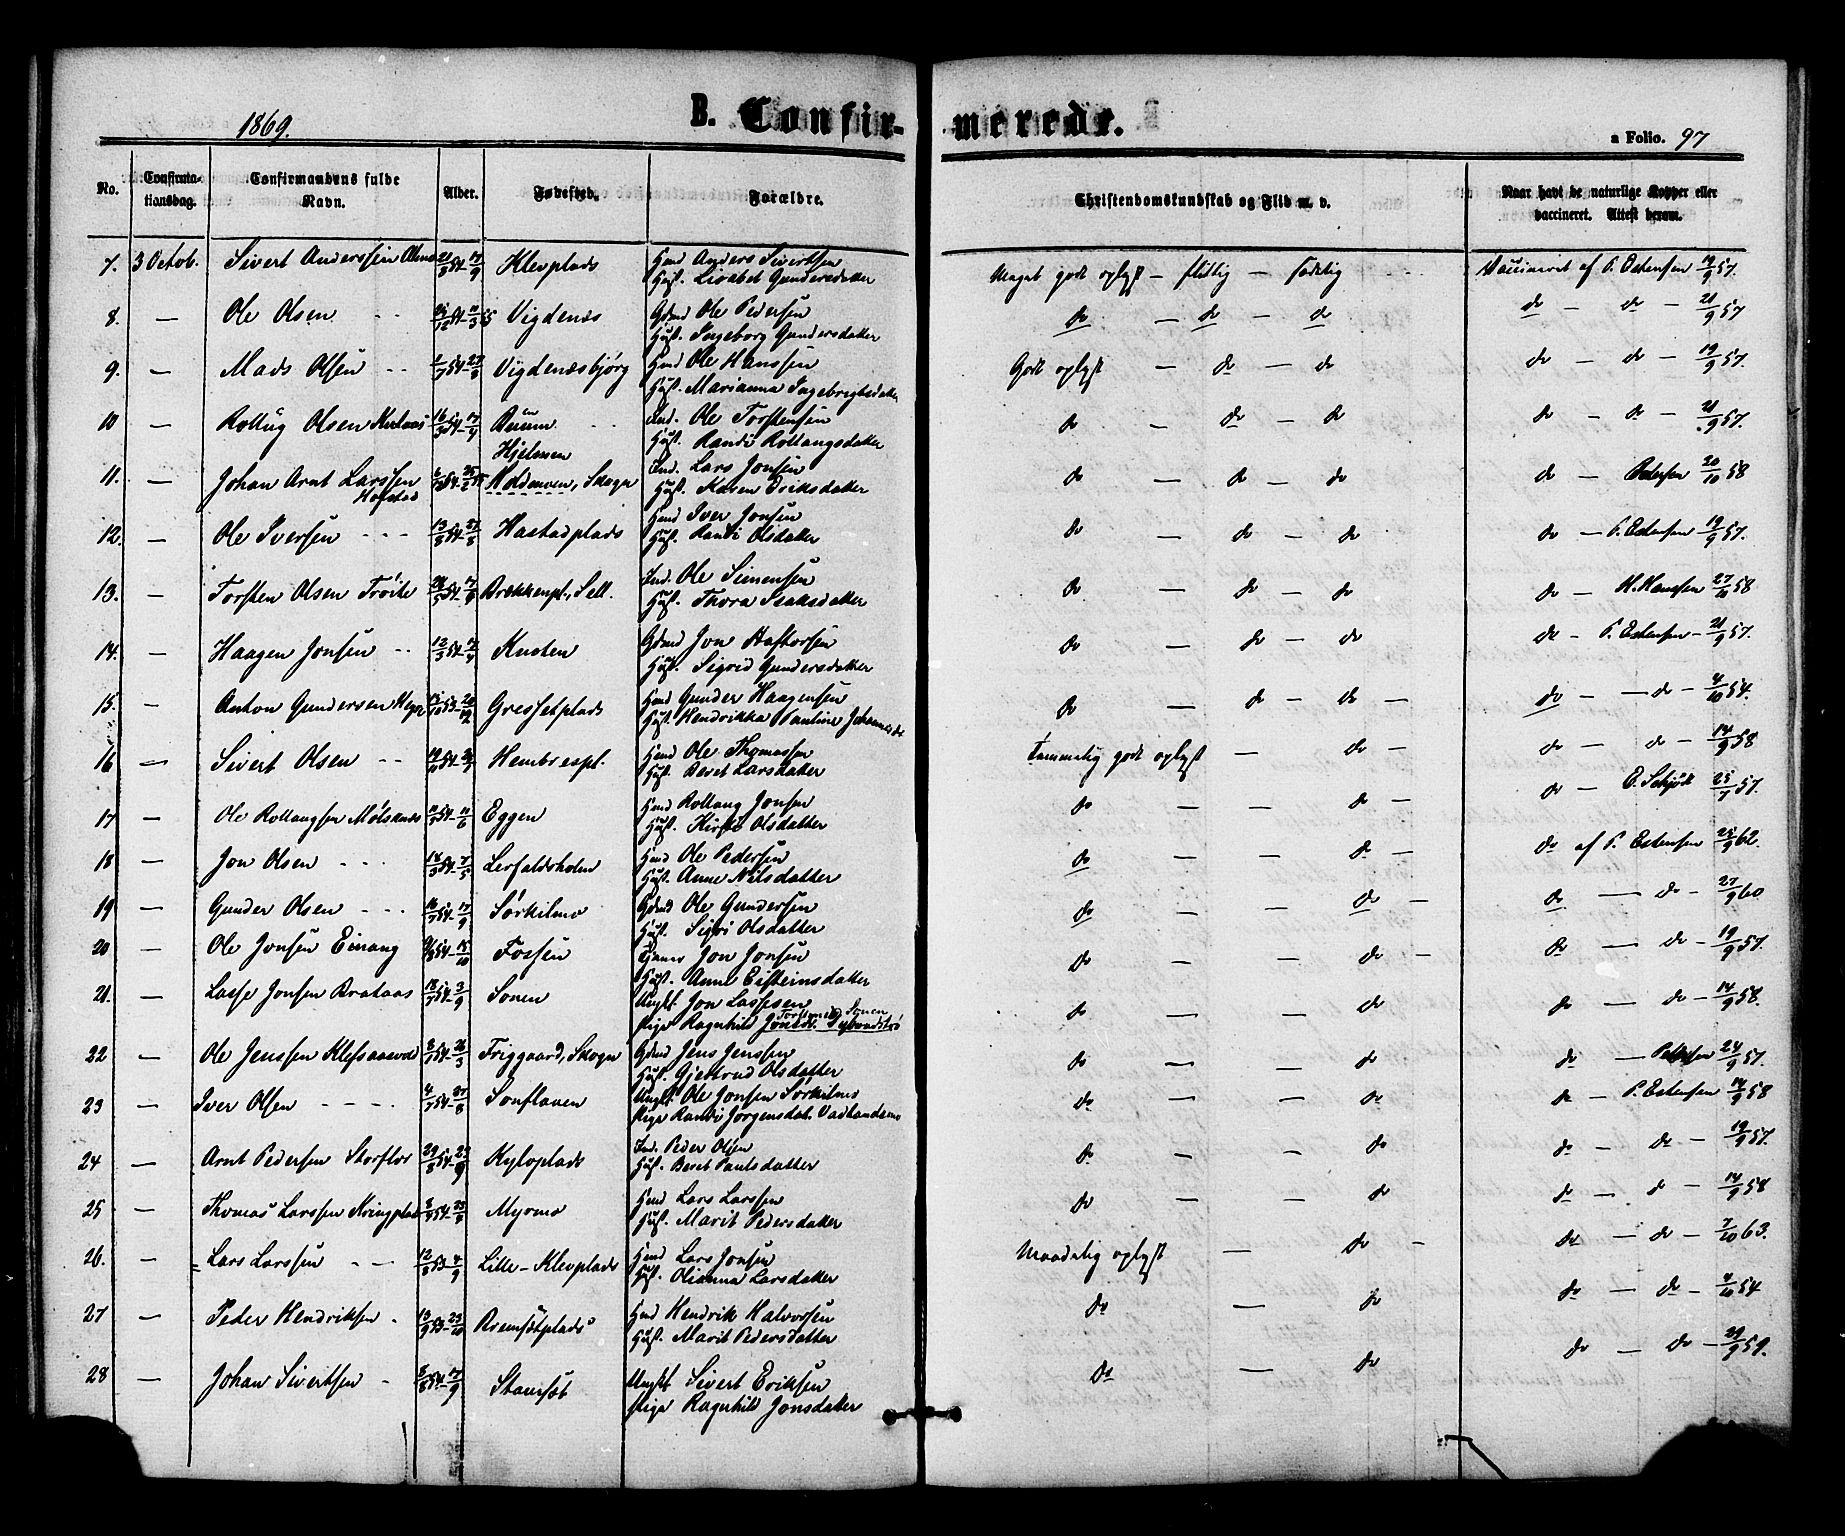 1869.
B. Confir-
merede.
a Folio. 97
No.
Confirma-
tionsdag.
Confirmandens fulde
Navn.
Alder.
Fødested.
Forældre.
Christendomskundskab og Flid m. v.
Naar havt de naturlige Kopper eller
vaccineret. Attest derom.
7. 3 Octob. Sivert Anderssen Klevplads Hmd Anders Sivertsen
Hust. Lisabet Gundersdatter
Meget godt oplyst – flittig – sædelig Vaccineret af P. Estensen 19/9 57.
8. — Ole Olsen Vigdenæs Gdmd Ole Pedersen
Hust. Ingeborg Gundersdatter
do — do — do do — do — 21/9 57
9. — Mads Olsen Vigdenæsbjørg Hmd Ole Hanssen
Hust. Marianna Ingebrigtsdatter
Godt oplyst — do — do do — do — 19/9 57.
10 — Rollug Olsen Ind. Ole Torstensen
Hust. Randi Rollaugsdatter
do — do — do do — do — 21/9 57.
Hjelmen
11. — Johan Arnt Larssen Skogn Ind. Lars Jonsen
Hofstad Hust. Karen Eriksdatter
do — do — do do — Petersen 20/10 58
12. — Ole Iversen Hastadplads Hmd Iver Jonsen
Hust. Randi Olsdatter
do — do — do do — P. Estensen 19/9 57.
13. — Torsten Olsen Trøite Brekkenpl., Selb. Ind. Ole Simensen
Hust. Thora Isaksdatter
do — do — do do — H. Hanssen 27/10 58
14. — Haagen Jonsen Kusten Gdmd Jon Haftorsen
Hust. Sigrid Gundersdatter
do — do — do do – P. Estensen – 21/9 57.
15. — Anton Gundersen Gressetplads Hmd Gunder Haagensen
Hust. Hendrikka Pauline Johannesdt
do — do — do — do — do — 4/10 54.
16 — Sivert Olsen Hembrespl. Hmd Ole Thomassen
Hust. Beret Larsdatter
Temmelig godt oplyst — do — do — do — 14/9 58
17 — Ole Rollaugsen Eggen Hmd Rollaug Jonsen
Hust. Kirsti Olsdatter
do — — do — do — E. Schjött 25/7 57.
18 — Jon Olsen Lerfaldsholen Hmd Ole Pedersen
Hust. Anne Nilsdatter
do — — do — do af P. Estensen 25/9 62.
19 — Gunder Olsen Sørkilmo Gdmd Ole Gundersen
Hust. Sigri Olsdatter
do — — do — do — do — 27/9 60
20 — Ole Jonsen Einang Fossen Jon Jonsen
Hust. Anne Eisteinsdatter
do — — do — do — do — 19/9 57.
21. — Lasse Jonsen Brataas Sonen Ungkl Jon Lassesen
Pige Ragnhild
do — — do do — do — 14/9 58.
22 — Ole Jenssen Friggaard, Skogn Gdmd Jens Jenssen
Hust. Gjertrud Olsdatter
do — — do do — Petersen 24/9 57.
23 — Iver Olsen Sonflaven Ungkl. Ole Jonsen Sørkilmo
Pige Randi Jørgensdat.
do — — do do — P. Estensen 14/9 58
24 — Arnt Pedersen Storflor Kyloplads Ind. Peder Olsen
Hust. Beret Paulsdatter
do — — do do — do — 19/9 57.
25 — Thomas Larssen Kringplads Myrmo Hmd Lars Larssen
Hust. Marit Pedersdatter
do — — do do — do — 14/9 58
26. — Lars Larssen Lille-Klevplads Hmd Lars Jonsen
Hust. Olianna Larsdatter
Maadelig oplyst — do — do — do — 7/10 63.
27 — Peder Hendriksen Hmd Hendrik Halvorsen
Hust. Marit Pedersdatter
do — do do — do — 4/10 54
28 — Johan Sivertsen Stamsæt Ungkl Sivert Eriksen
Pige Ragnhild Jonsdatter
do — do do — do — 29/9 59.